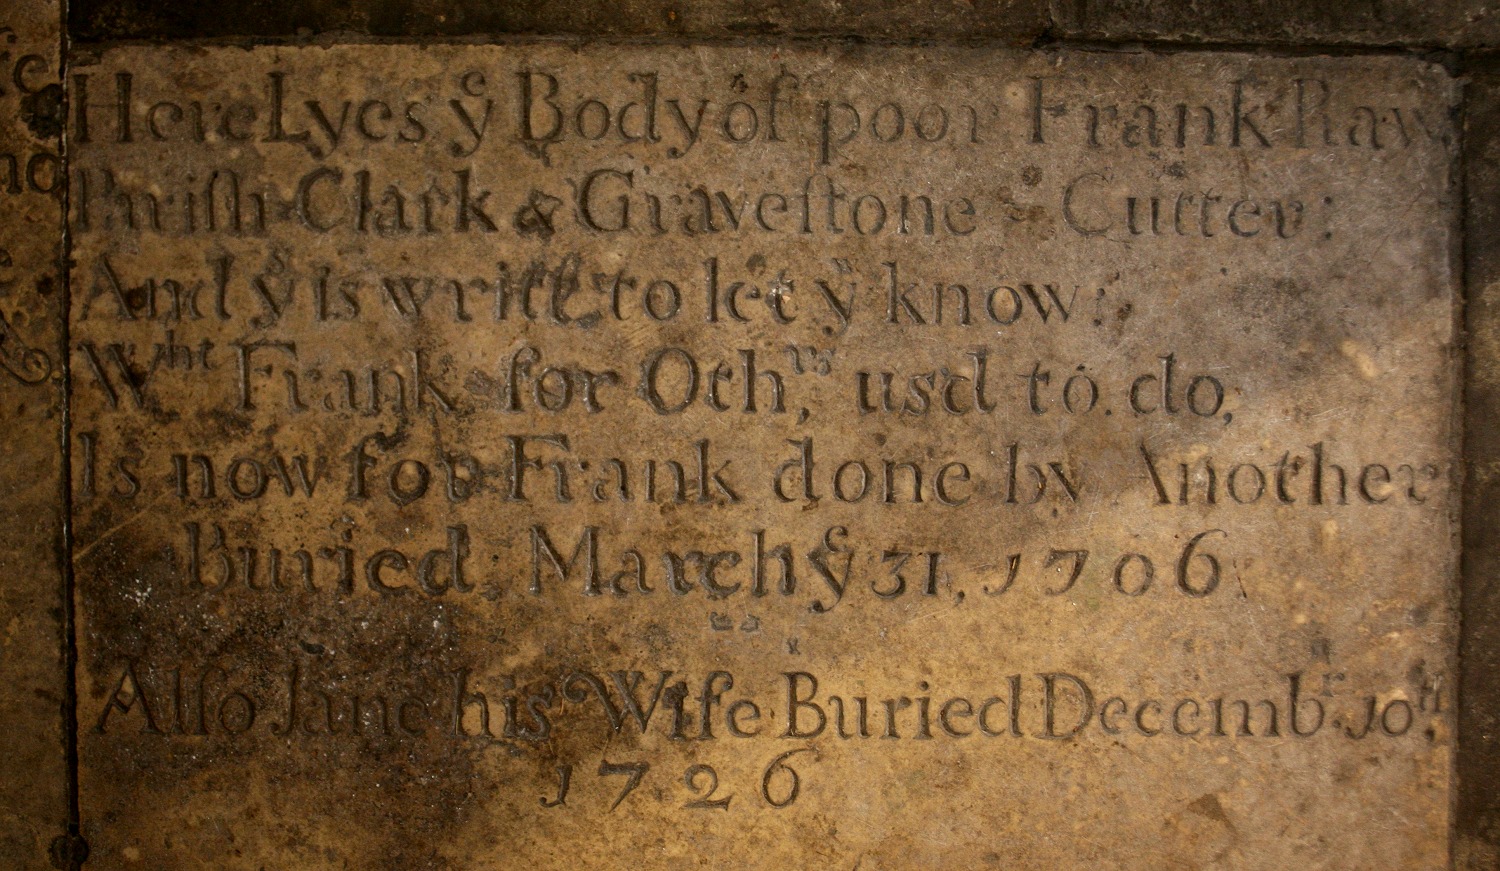 Here Lyes yͤ Body of poor Frank Raw,
Pariſh-Clark & Graveſtone Cutter:
And yͥs is writt to let yͧ know:
Wʰᵗ Frank for Othʳˢ, us'd to do,
Is now for Frank done by Another
Buried, March yͤ 31, 1706
Alſo Jane his Wife Buried Decembʳ, 10ᵗʰ,
1726